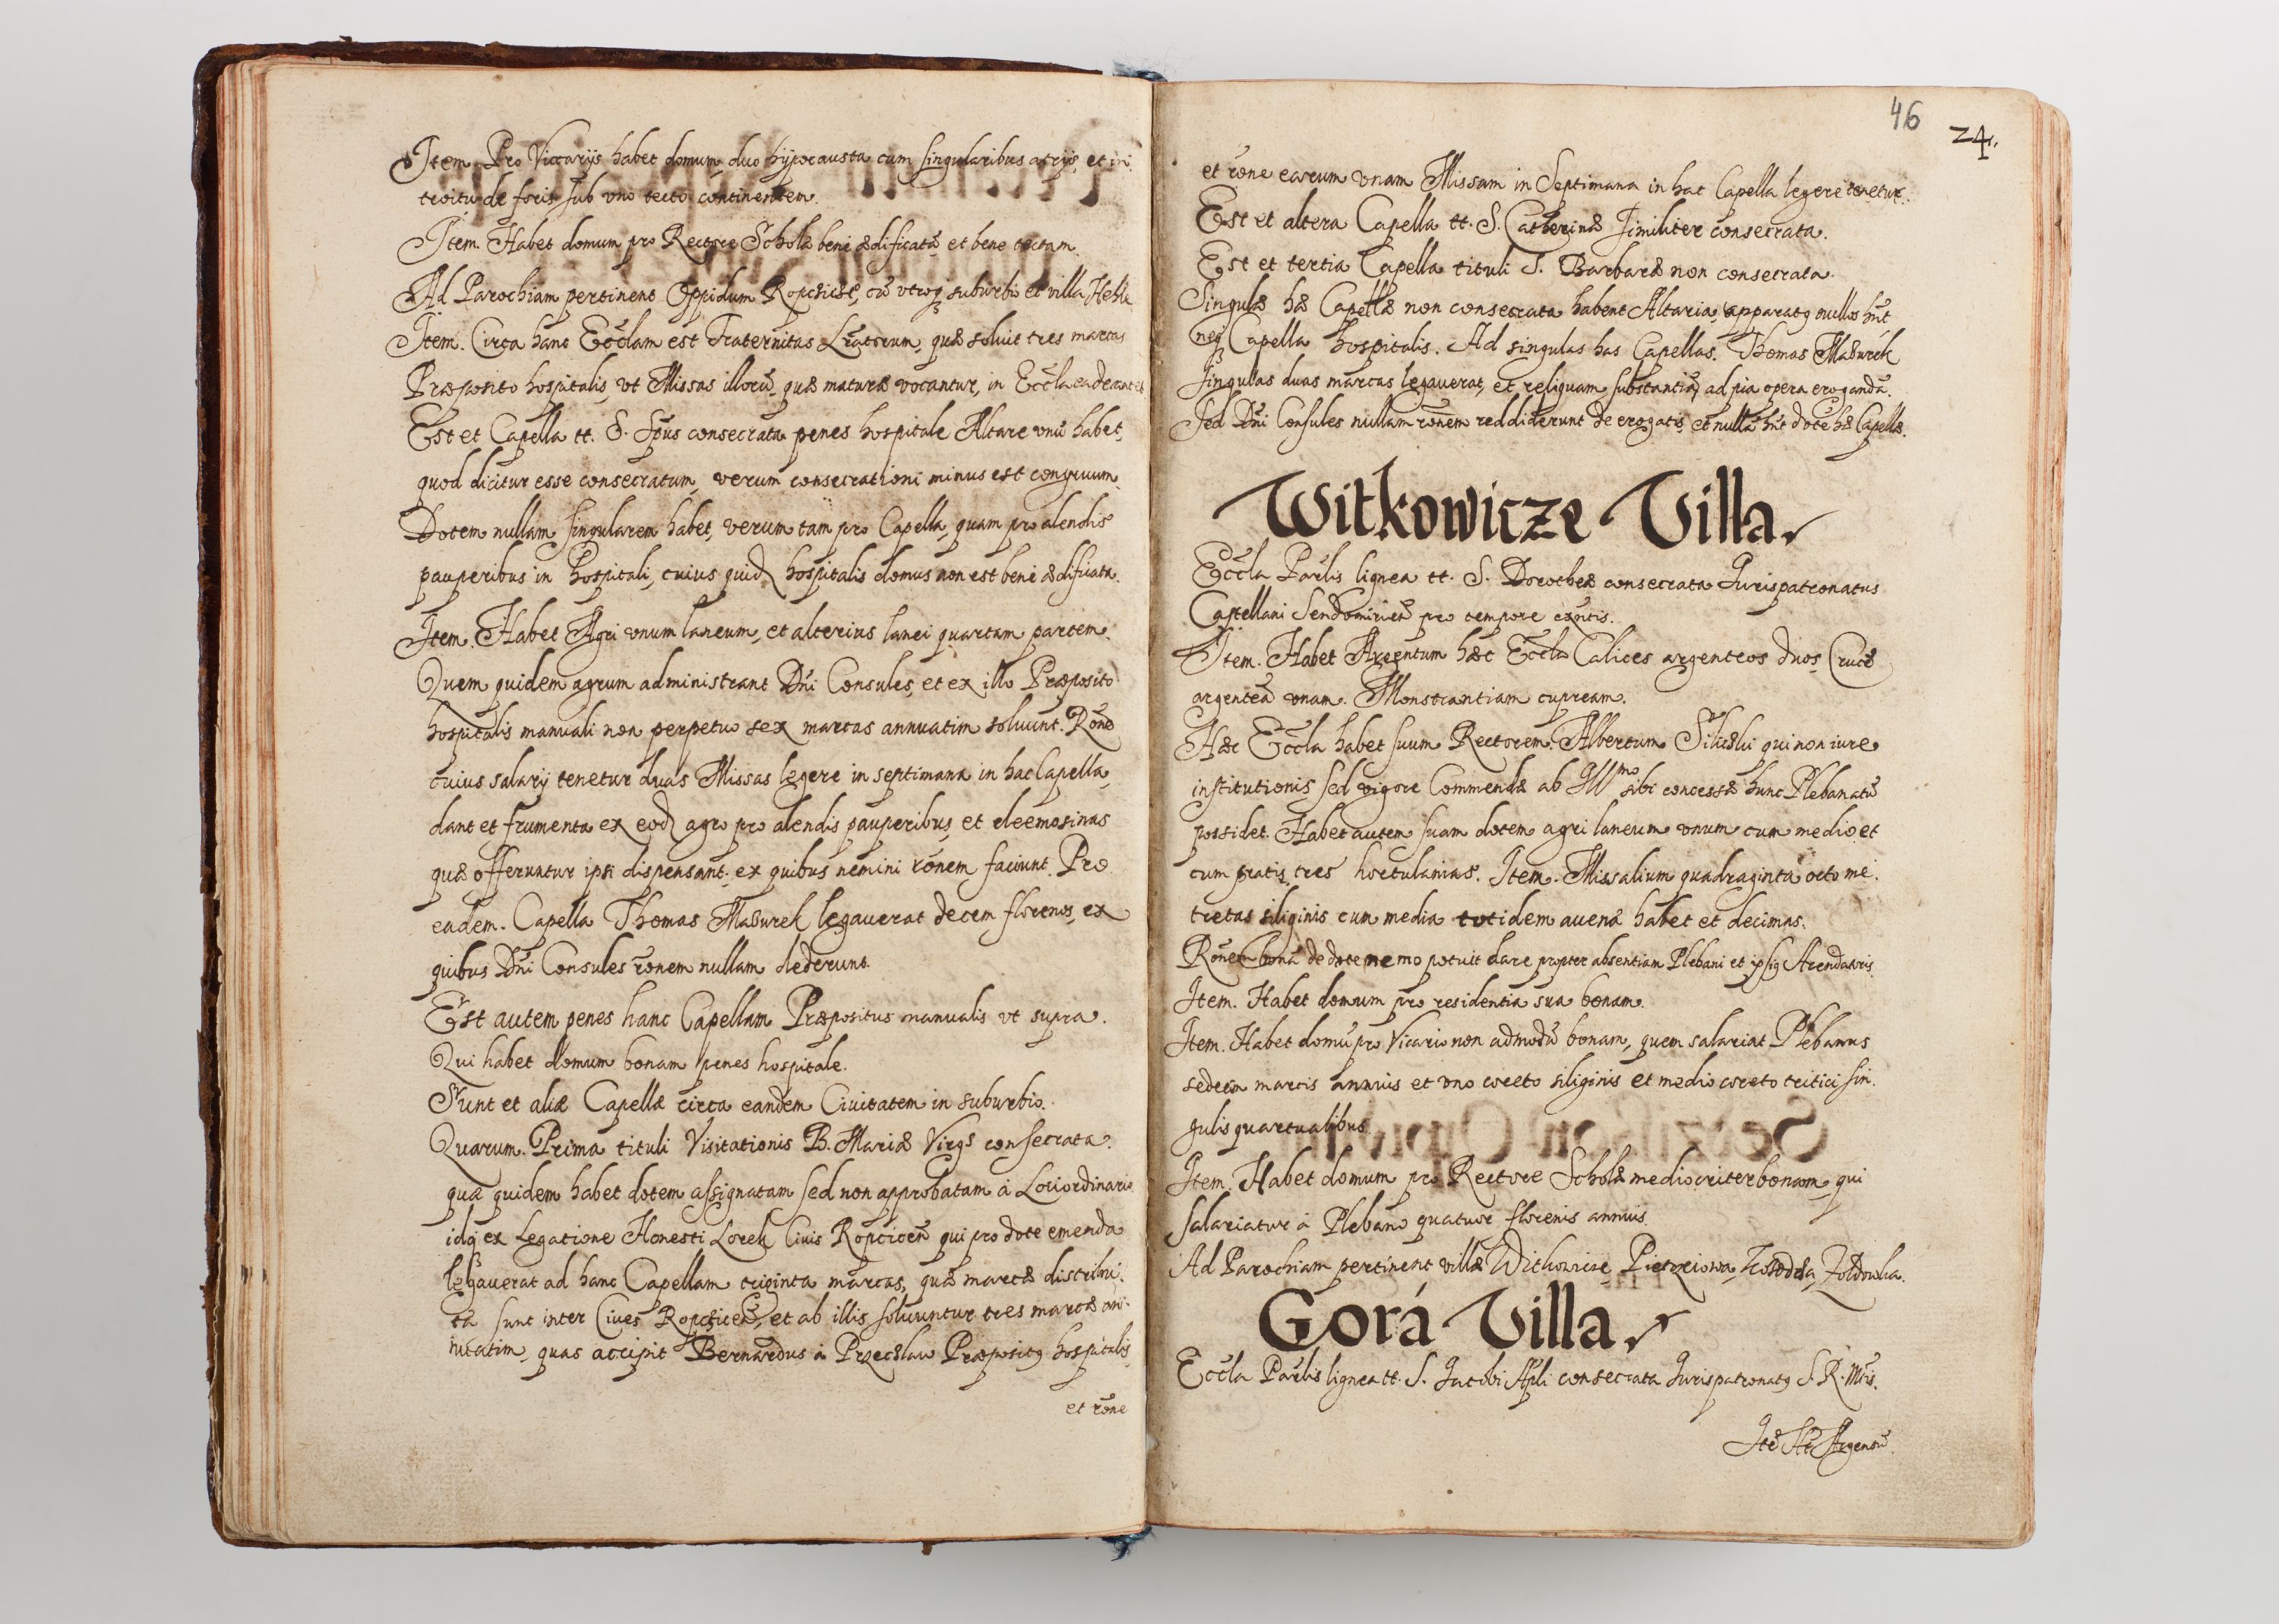 Item. Pro Viccarijs habet domum, duo hijpocausta cum singularibus atrijs, et in:
troitu de foris sub vno tecto continentem.
Item. Habet domum pro Rectore Scholæ bene ædificatā et bene tectam.
Ad Parochiam pertinent Oppidum Ropczicze, cū vtroq; suburbio et villa
Item. Circa hanc Ecclam est Fraternitas Lratorum, quæ soluit tres marcas
Præposito hospitalis, vt Missas illorū, quæ maturæ vocantur, in Eccla eadem
Est et Capella tt. S. Spūs consecrata penes hospitale Altare vnū habet,
quod dicitur esse consecratum, verum consecrationi minus est congruum.
Dotem nullam singularem habet, verum tam pro Capella, quam pro alendis
pauperibus in hospitali, cuius quidē hospitalis domus non est bene ædificata.
Item. Habet Agri vnum laneum, et alterius lanei quartam partem.
Quem quidem agrum administrant Dñi Consules, et ex illo Præposito
hospitalis manuali non perpetuo sex marcas annuatim soluunt. Rōne
cuius salarij tenetur duas Missas legere in septimana in hac Capella,
dant et frumenta ex eodē agro pro alendis pauperibus, et eleemosinas
quæ offeruntur ipsi dispensant, ex quibus nemini rōnem faciunt. Pro
eadem. Capella Thomas Mazurek legauerat decem florenos, ex
quibus Dñi Consules rōnem nullam dederunt.
Est autem penes hanc Capellam Præpositus manualis vt supra.
Qui habet domum bonam penes hospitale.
Sunt et aliæ Capellæ circa eandem Ciuitatem in suburbio.
Quarum. Prima tituli Visitationis B. Mariæ Virgs consecrata.
quæ quidem habet dotem assignatam sed non approbatam à Loci ordinario
idq; ex Legatione Honesti Lorek Ciuis Ropcicen̄ qui pro dote emenda
legauerat ad hanc Capellam triginta marcas, quæ marcæ distribu:
tæ sunt inter Ciues Ropczicen̄, et ab illis soluuntur tres marcæ an:
nuatim, quas accipit Bernardus à Przeclaw Præposit9 hospitalis,
et rōne
46
24.
et rōne earum vnam Missam in Septimana in hac Capella legere tenetur.
Est et altera Capella tt. S. Catherinæ similiter consecrata.
Est et tertia Capella tituli S. Barbaræ non consecrata.
Singulæ hæ Capellæ non consecrata habent Altaria, apparat9 nullos hn̄t
neq; Capella hospitalis. Ad singulas has Capellas. Thomas Mazurek
singulas duas marcas legauerat, et reliquam substantiā ad pia opera erogandā.
Sed Dñi Consules nullam rōnem reddiderunt de erogatis, et nullā hn̄t dotē hæ Capellæ.
Witkowicze Villa
Eccla Parlis lignea tt. S. Dorotheæ consecrata Jurispatronatus
Castellani Sendomirien̄ pro tempore exn̄tis.
Item. Habet Argentum hæc Eccla Calices argenteos duos, Crucē
argenteā vnam. Monstrantiam cupream.
Hæc Eccla habet suum Rectorem. Albertum qui non iure
institutionis sed vigore Commendæ ab Illmo sibi concessæ hunc Plebanatū
possidet. Habet autem suam dotem agri laneum vnum cum medio, et
cum pratis, tres hortulanias. Item. Missalium quadraginta octo me:
tretas siliginis cum media totidem auenæ habet et decimas.
Rōnem bonā de dote nemo potuit dare propter absentiam Plebani et ipsi9 Arendatoris.
Item. Habet domum pro residentia sua bonam.
Item. Habet domū pro Vicario non admodū bonam, quem salariat Plebanus
sedecim marcis annuis et vno coreto siliginis et medio coreto tritici sin:
gulis quartualibus.
Item. Habet domum pro Rectore Scholæ mediocriter bonam, qui
salariatur à Plebano quatuor florenis annuis.
Ad Parochiam pertinent villæ Witkowicze,
Gorá Villa
Eccla Parlis lignea tt. S. Jacobi Apli consecrata Jurispatronat9 S. R. Mtis.
Itē Ht Argentū